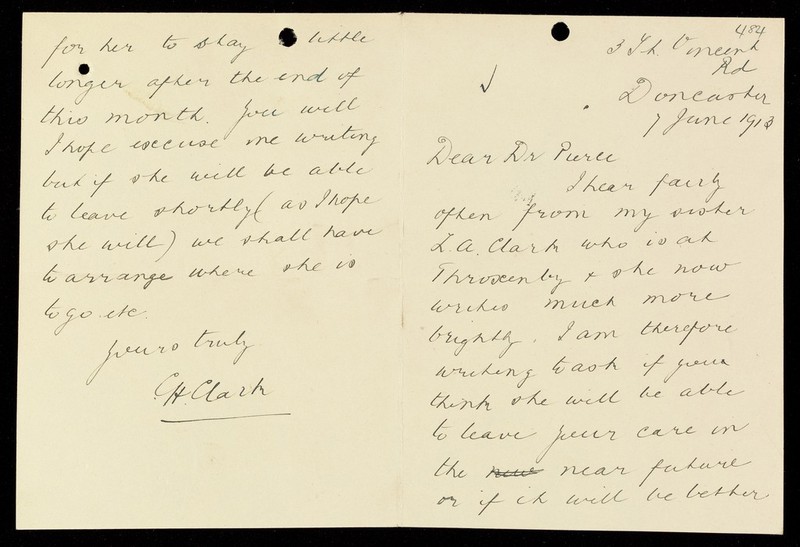 484
3 St. Vincent
Rd
Doncaster
7 June 1913
Dear Dr Pierce
I hear fairly
often from my sister
L.A. Clark who is at
Throxenby & she now
writes much more
brightly. I am therefore
writing to ask if you
think she will be able
to leave your care in
the near future
or if it will be better
for her to stay a little
longer after the end of
this month. You will
I hope excuse me writing
but if she will be able
to leave shortly (as I hope
she will) we shall have
to arrange where she is
to go etc.
Yours truly
C.H. Clark